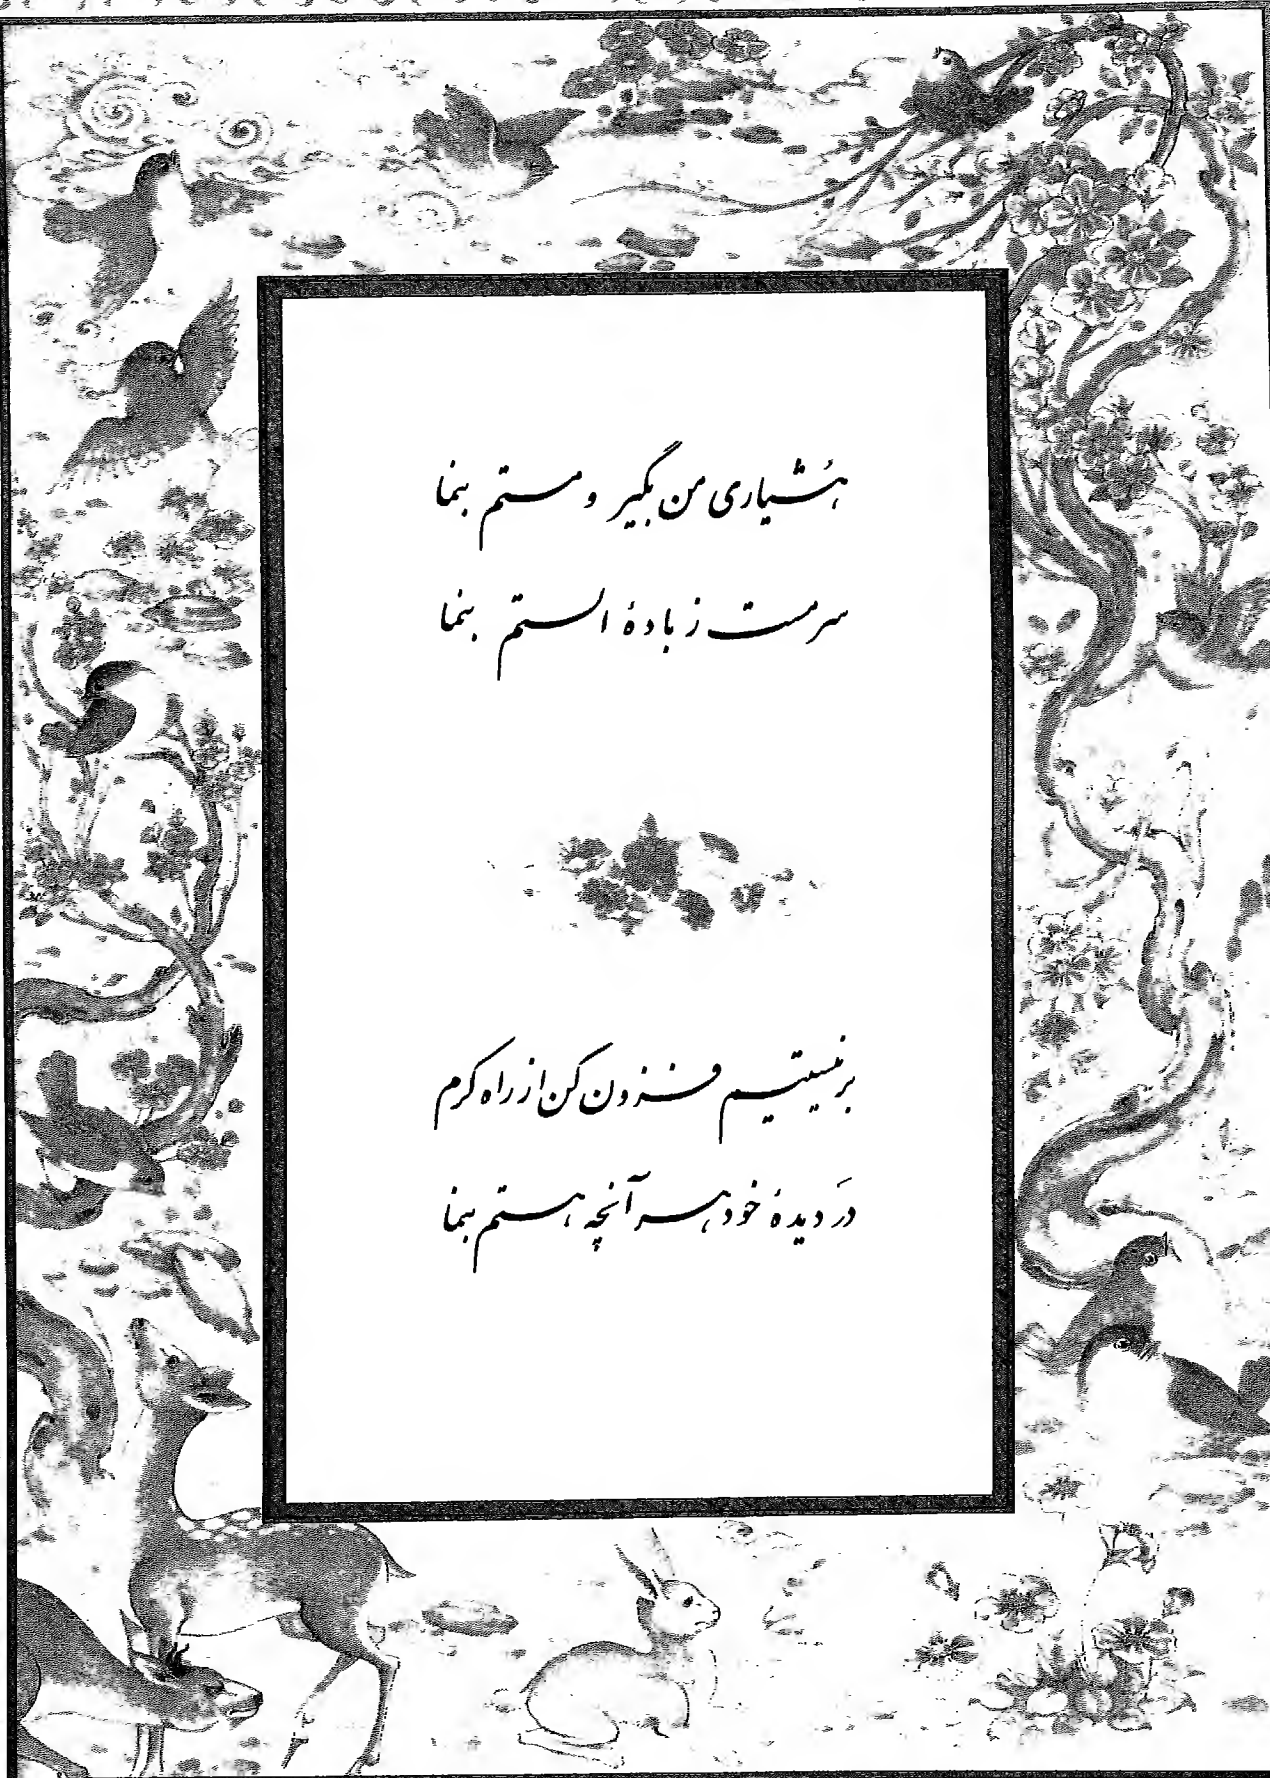 هُشیاری من بگیر و مستم بنما
سرمست ز بادهٔ الستم بنما
بر نیستیم فزون کن از راه کرم
در دیدهٔ خود هر آنچه هستم بنما